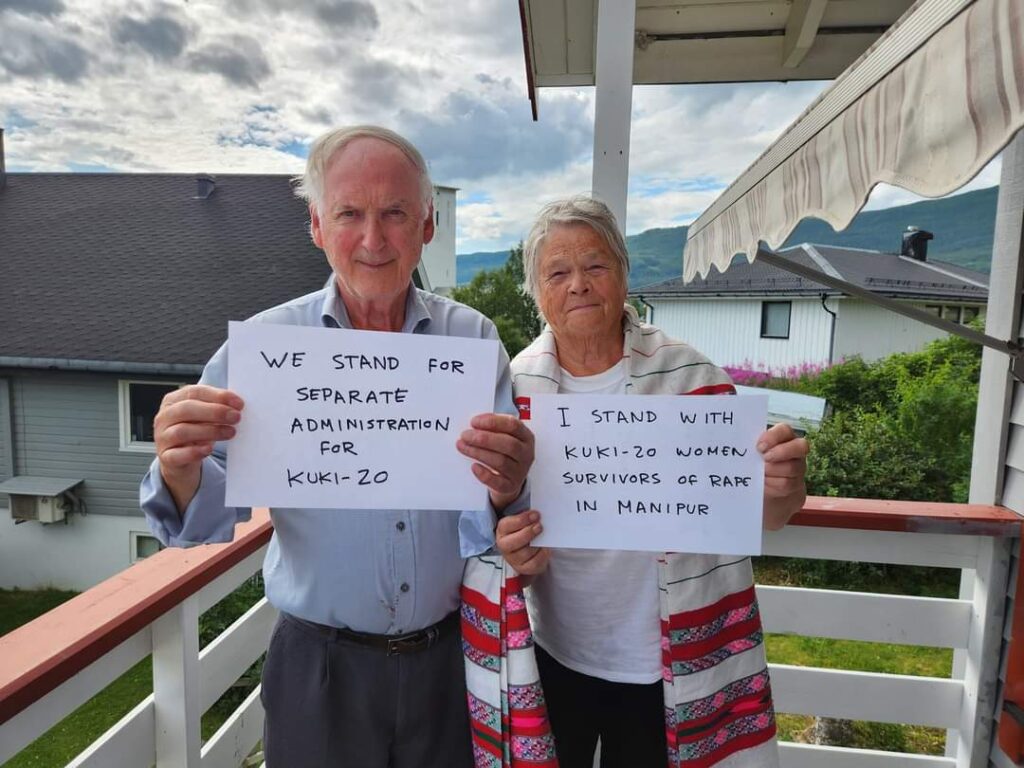 WE STAND FOR
SEPARATE
ADMINISTRATION
FOR
KUKI-ZO
I STAND WITH
KUKI-ZO WOMEN
SURVIVORS OF RAPE
IN MANIPUR